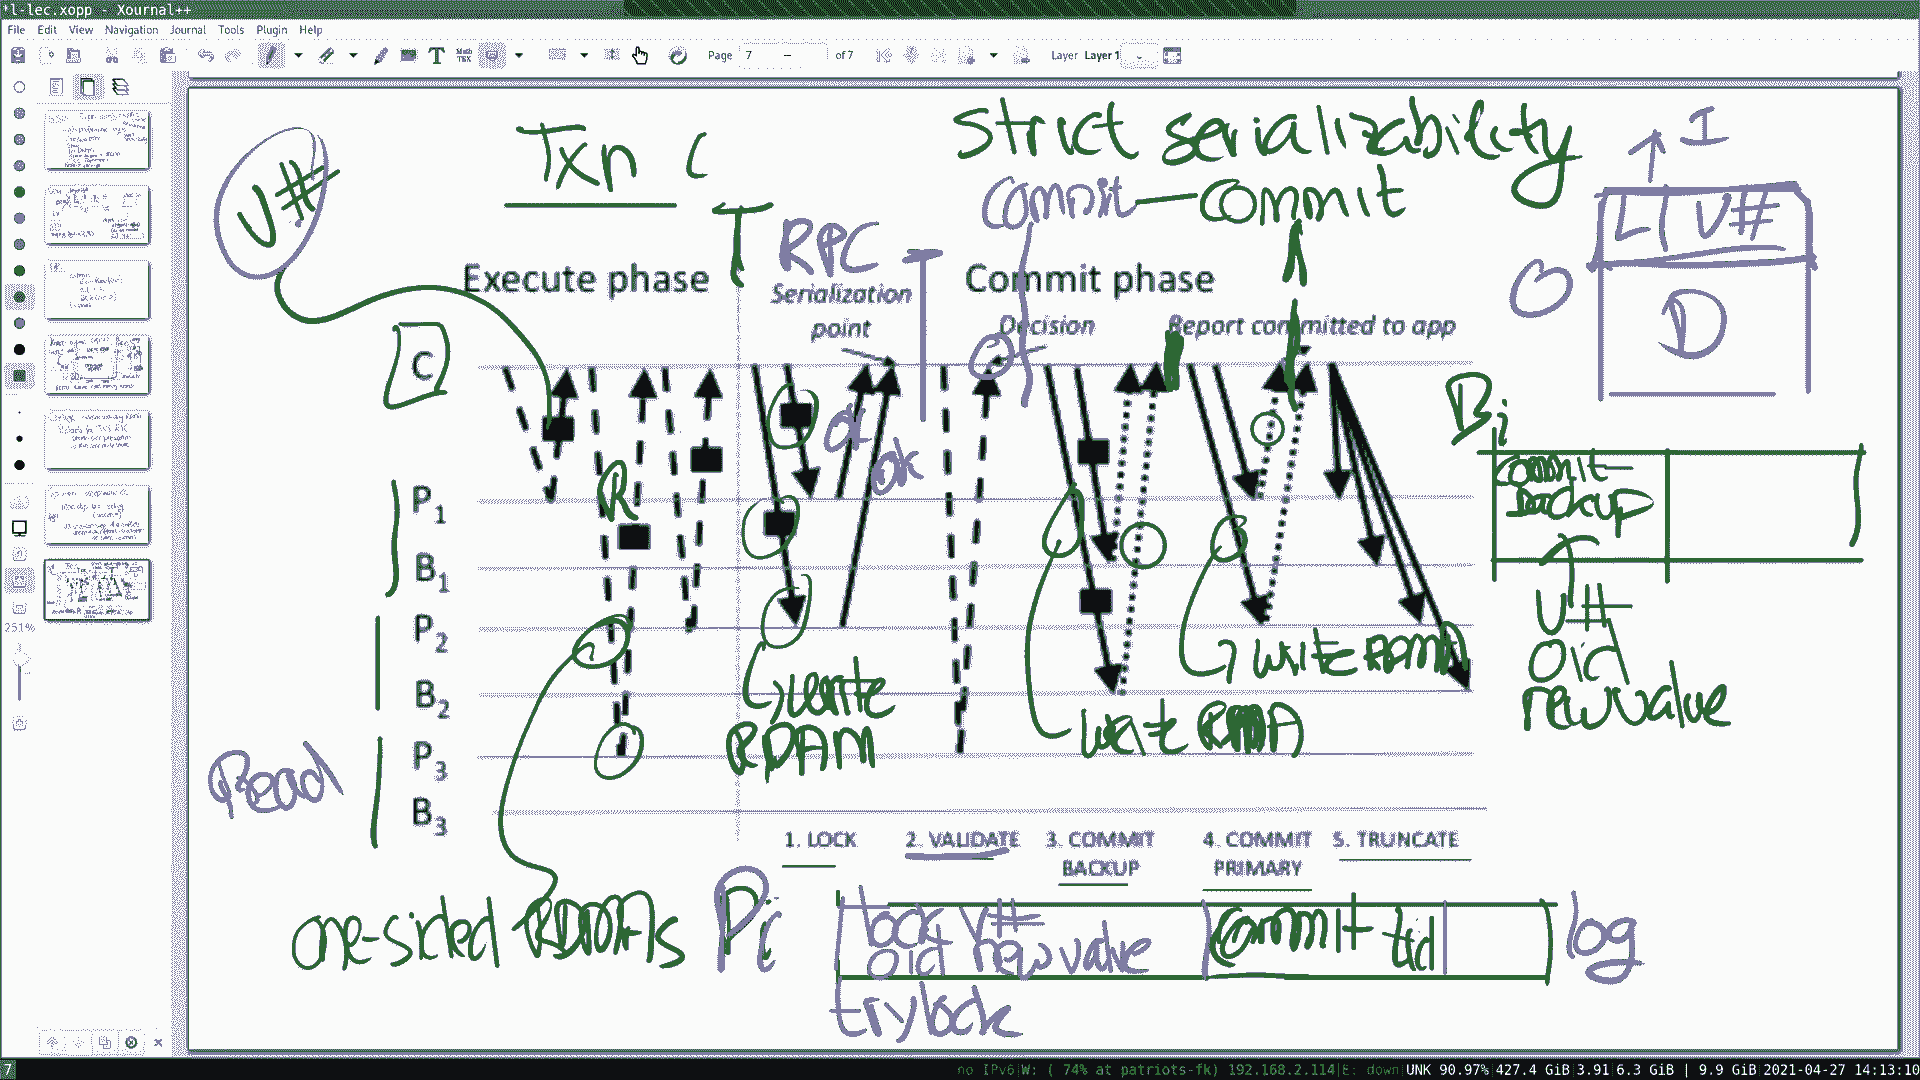 *l-lec.xopp - Xournal++
File Edit View Navigation Journal Tools Plugin Help
Page 7 of 7 Layer Layer 1
251%
V#
Txn C
Strict serializability
Commit — commit
I
L | V#
O
D
RPC
Execute phase
Serialization point
Commit phase
Decision
Report committed to app
C
ok
ok
R
P1
B1
P2
B2
P3
B3
Read
write
RDAM
write RDMA
write RDMA
Bi
commit
backup
V#
oid
new value
1. LOCK
2. VALIDATE
3. COMMIT BACKUP
4. COMMIT PRIMARY
5. TRUNCATE
one-sided RDMAs
Pi
lock V#
oid new value
commit tid
log
trylock
7
no IPv6 W: ( 74% at patriots-fk) 192.168.2.114 E: down UNK 90.97% 427.4 GiB 3.91 6.3 GiB | 9.9 GiB 2021-04-27 14:13:10